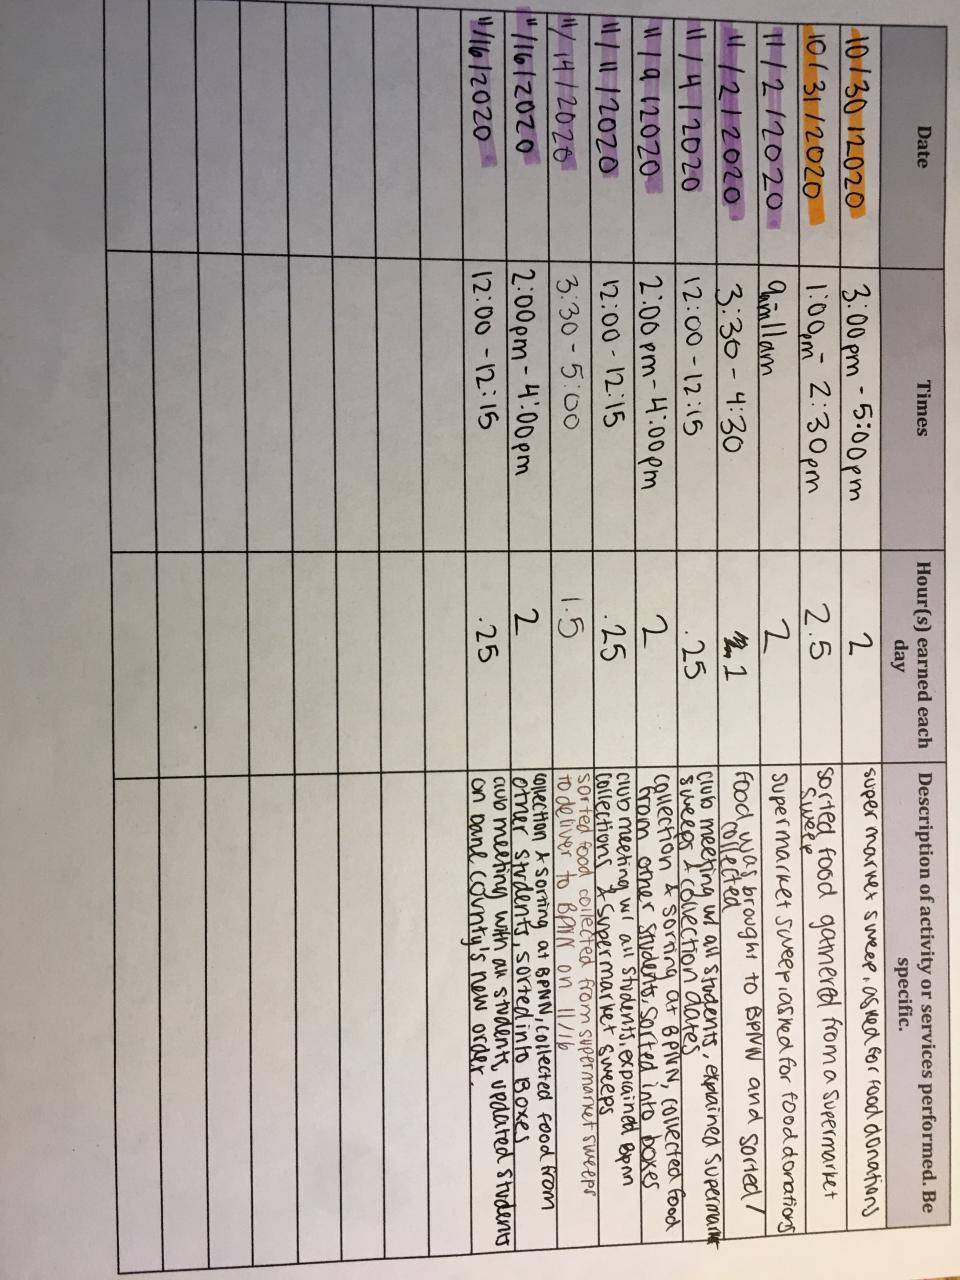 Date Times Hour(s) earned each day Description of activity or services performed. Be specific.
10/30/2020 3:00pm - 5:00pm 2 super market sweep, asked for food donations
10/31/2020 1:00pm - 2:30pm 2.5 sorted food gathered from a supermarket
sweep
11/2/2020 9am-11am 2 supermarket sweep, asked for food donations
11/2/2020 3:30 - 4:30 1 Food was brought to BPNN and sorted /
collected
11/4/2020 12:00 - 12:15 .25 club meeting w/ all students, explained supermarket
sweeps & collection dates
11/9/2020 2:00pm - 4:00pm 2 collection & sorting at BPNN, collected food
from other students, sorted into boxes
11/11/2020 12:00 - 12:15 .25 club meeting w/ all students, explained Bpnn
collections & supermarket sweeps
11/14/2020 3:30 - 5:00 1.5 sorted food collected from supermarket sweeps
to deliver to BPNN on 11/16
11/16/2020 2:00pm - 4:00pm 2 collection & sorting at BPNN, collected food from
other students, sorted into Boxes
11/16/2020 12:00 - 12:15 .25 club meeting with all students, updated students
on Dane county's new order.